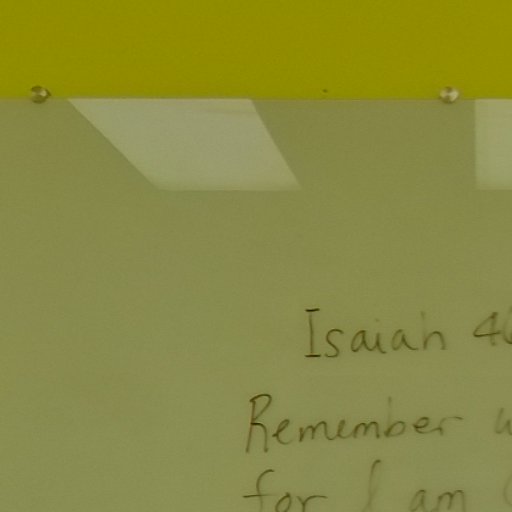 Isaiah 46
Remember
for I am